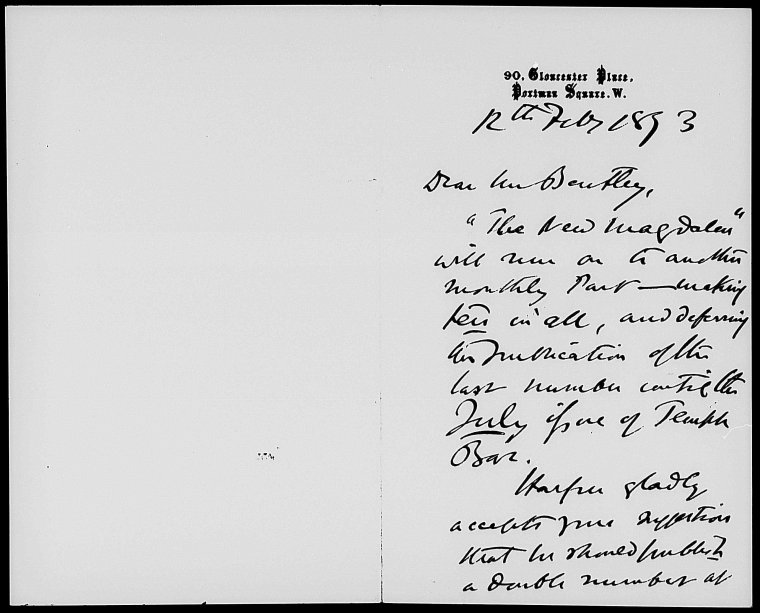 90, Gloucester Place,
Portman Square. W.
12th Feby 1893
Dear Mr Bentley,
"The New Magdalen"
will run on to another
monthly Part — making
ten in all, and deferring
the publication of the
last number until the
July issue of Temple
Bar.
Harper gladly
accepts your suggestion
that he should publish
a double number at